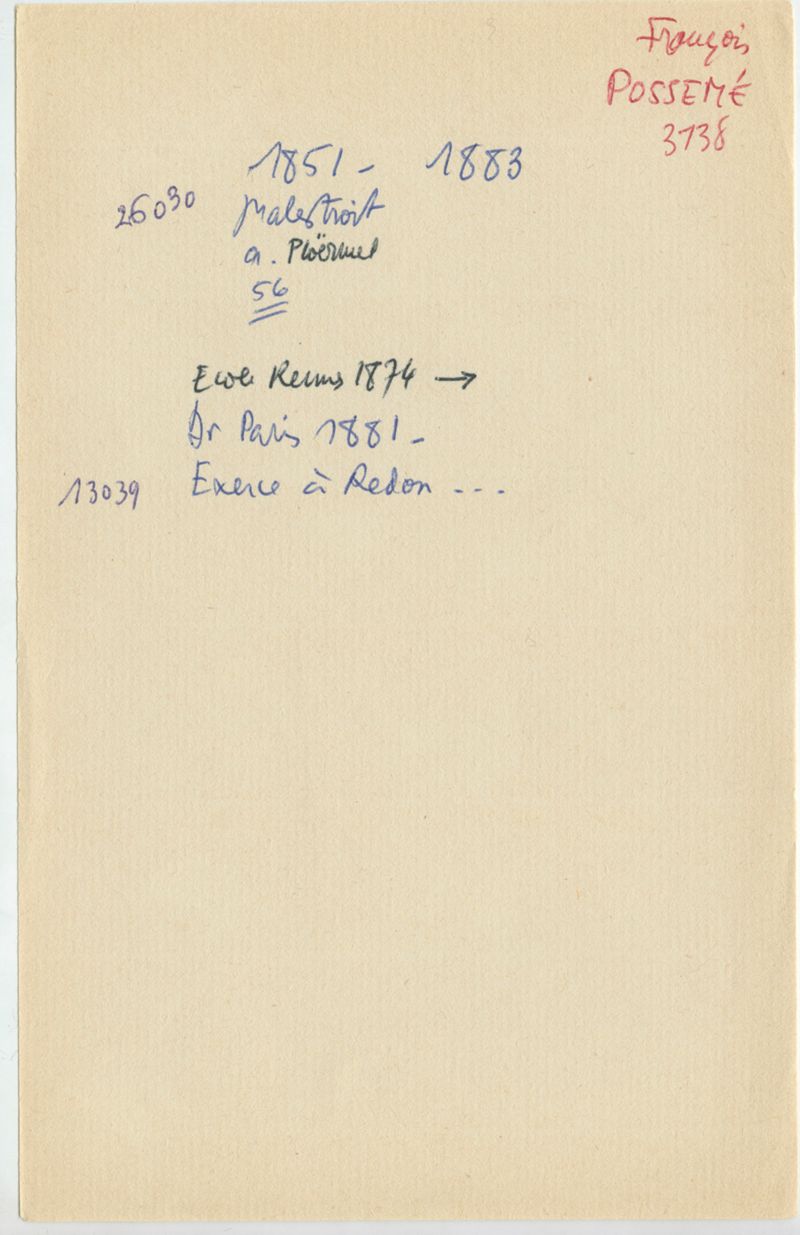 François
POSSEMÉ
3138
1851 - 1883
26030 Malestroit
a. Ploërmel
56
Ecole Rennes 1874 →
Dr Paris 1881 -
13039 Exerce à Redon ---